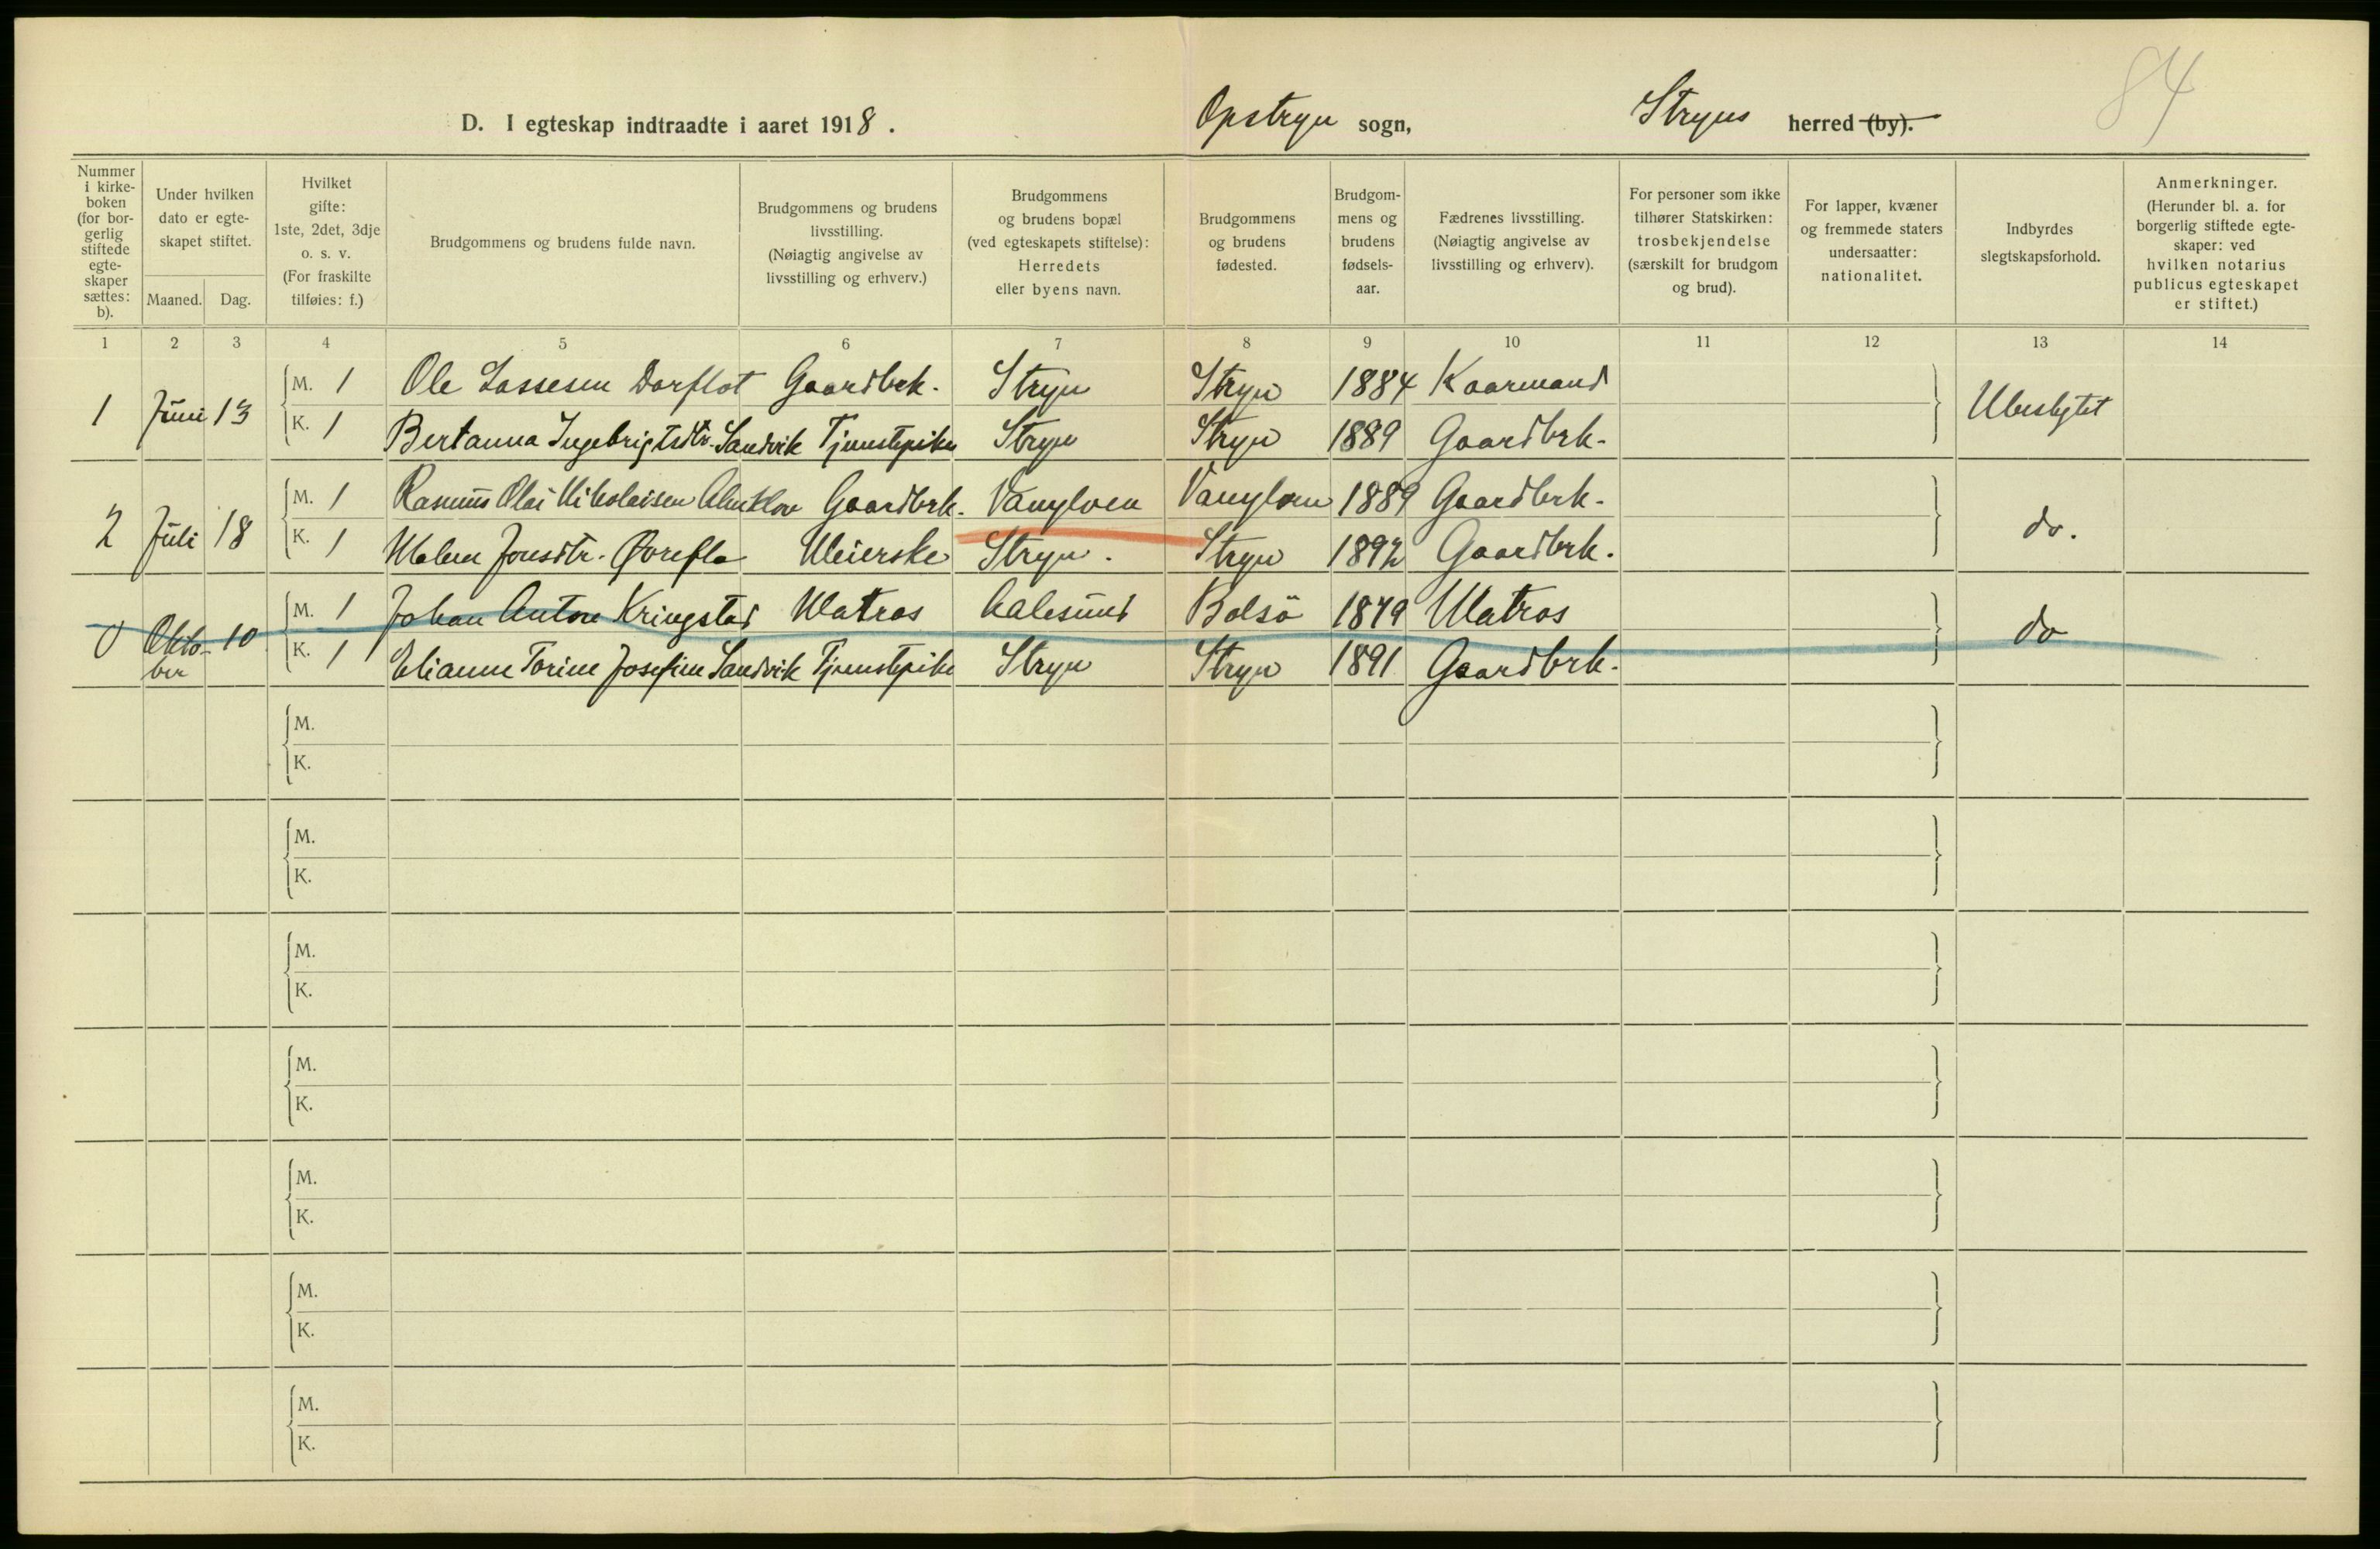 84
D. I egteskap indtraadte i aaret 1918. Opstryn sogn, Stryns herred (by).
Nummer i kirkeboken (for borgerlig stiftede egteskaper sættes: b).
Under hvilken dato er egteskapet stiftet.
Maaned. Dag.
Hvilket gifte: 1ste, 2det, 3dje o. s. v. (For fraskilte tilføies: f.)
Brudgommens og brudens fulde navn.
Brudgommens og brudens livsstilling. (Nøiagtig angivelse av livsstilling og erhverv.)
Brudgommens og brudens bopæl (ved egteskapets stiftelse): Herredets eller byens navn.
Brudgommens og brudens fødested.
Brudgommens og brudens fødselsaar.
Fædrenes livsstilling. (Nøiagtig angivelse av livsstilling og erhverv).
For personer som ikke tilhører Statskirken: trosbekjendelse (særskilt for brudgom og brud).
For lapper, kvæner og fremmede staters undersaatter: nationalitet.
Indbyrdes slegtskapsforhold.
Anmerkninger. (Herunder bl. a. for borgerlig stiftede egteskaper: ved hvilken notarius publicus egteskapet er stiftet.)
1 2 3 4 5 6 7 8 9 10 11 12 13 14
M. 1 Ole Lassesen Dorflot Gaardbrk. Stryn Stryn 1884 Kaarmand
1 Juni 13 Ubeslegtet
K. 1 Bertanna Ingebrigtsdtr. Sandvik Tjenestepike Stryn Stryn 1889 Gaardbrk.
M. 1 Rasmus Olai Nikolaisen Almklov Gaardbrk. Vanylven Vanylven 1889 Gaardbrk.
2 Juli 18 do.
K. 1 Malene Jonsdtr. Øvreflo Meierske Stryn. Stryn 1892 Gaardbrk.
M. 1 Johan Anton Kringstad Matros Aalesund Bolsö 1879 Matros
0 Oktober 10 do
K. 1 Elianne Torine Josefine Sandvik Tjenestepike Stryn Stryn 1891 Gaardbrk.
M.
K.
M.
K.
M.
K.
M.
K.
M.
K.
M.
K.
M.
K.